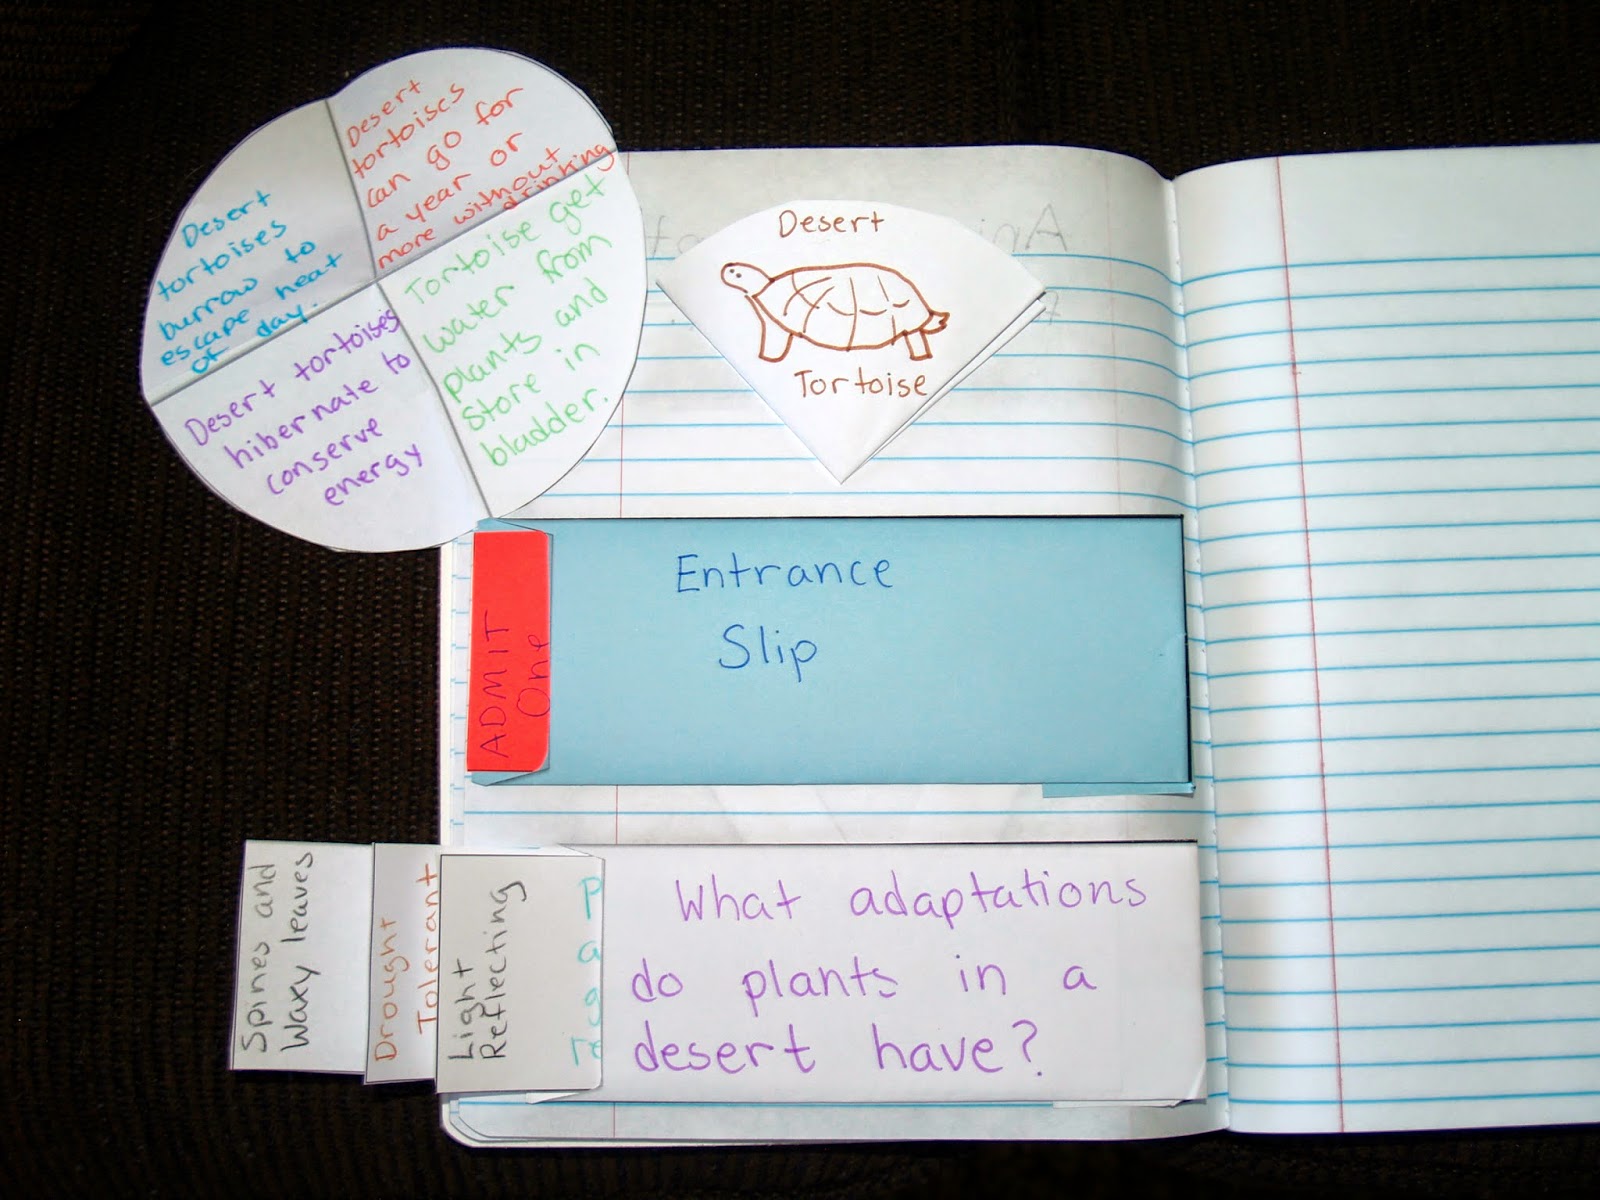 Desert
tortoises
can go for
a year or
more without
drinking
Desert
tortoises
burrow to
escape heat
of day.
Tortoise get
water from
plants and
Store in
bladder.
Desert tortoises
hibernate to
conserve
energy
Desert
Tortoise
Entrance
Slip
ADMIT
One
Spines and
Waxy leaves
Drought
Tolerant
Light
Reflecting
What adaptations
do plants in a
desert have?